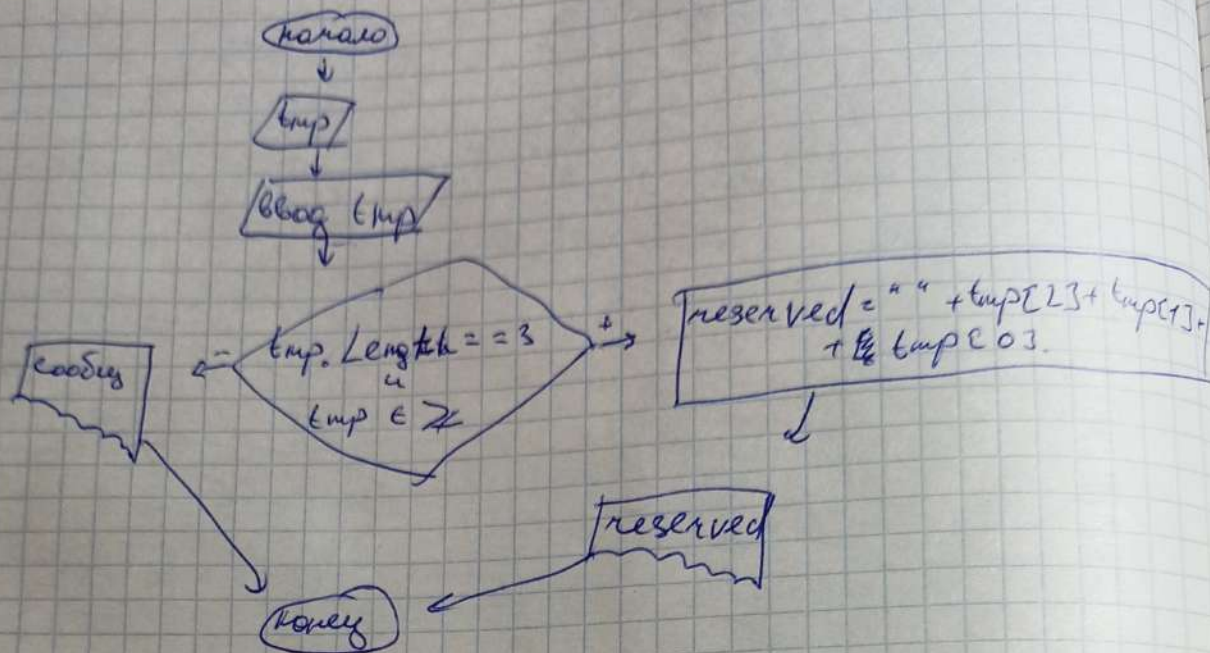 начало
tmp
ввод tmp
tmp. Length == 3
и
tmp ∈ ℤ
-
+
сообщ
reserved = " " + tmp[2] + tmp[1] +
+ tmp[0].
reserved
конец